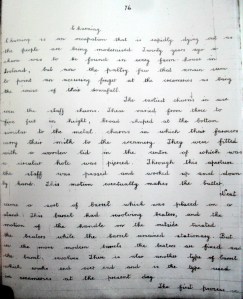 76
Churning
Churning is an occupation that is rapidly dying out as
the people are being modernised. Twenty years ago a
churn was to be found in every farm house in
Ireland, but now the
to point an accusing finger at the creameries as being
the cause of this downfall.
The earliest churn in use
was the staff churn. These varied from three to
five feet in height, broad shaped at the bottom
similar to the metal churns in which their farmers
bring their milk to the creamery. They were fitted
with a wooden lid in the centre of which was
a circular hole was pierced. Through this aperture
the staff was passed and worked up and down
by hand. This motion eventually makes the butter.
Next
came a sort of barrel which was placed in a
stand. This barrel had revolving beaters, and the
motion of the handle on the outside rotated
the beaters while the barrel remained stationary. But
in the more modern barrels the beaters are fixed and
the barrel revolves. There is also another type of barrel
which works end over end and is the type used
in creameries at the present day.
The first process